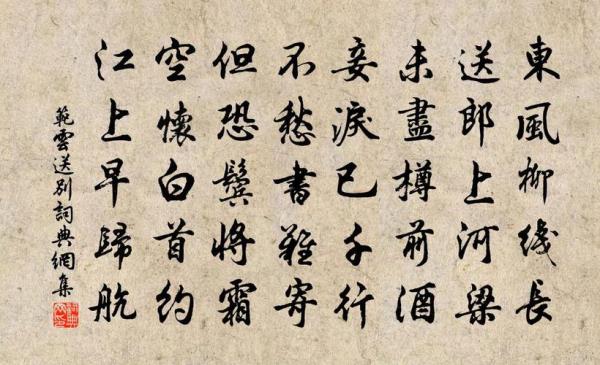 東風柳线長
送郎上河梁
未盡樽前酒
妾淚已千行
不愁書難寄
但恐鬢將霜
空懷白首約
江上早歸航
範雲送别詞典網集